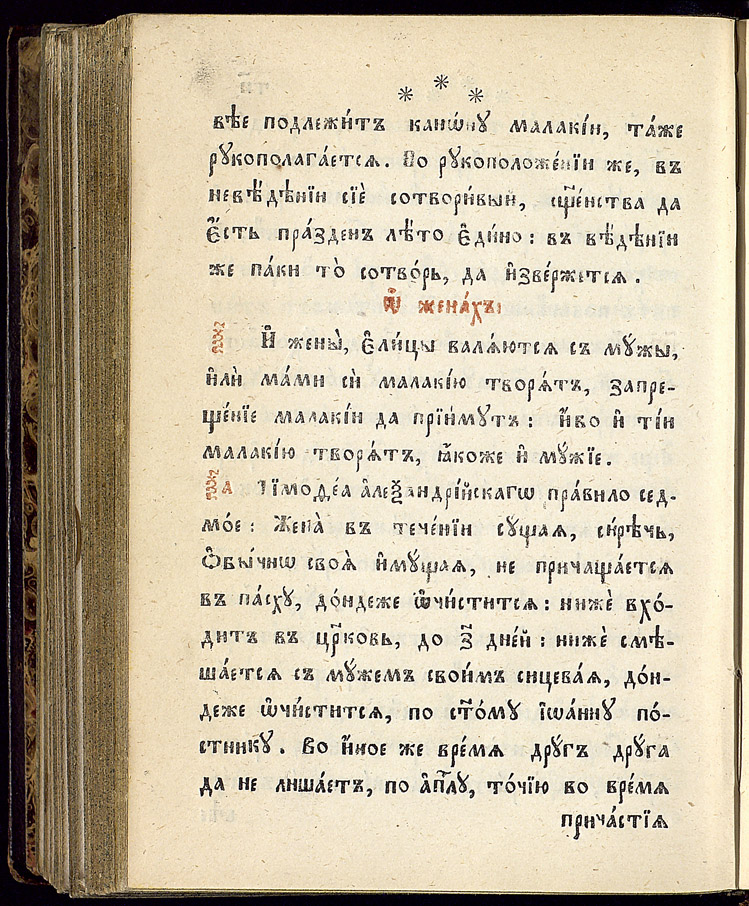 * * *
вѣе подлежи́тъ кано́нꙋ малакі́и, та́же
рꙋкополага́ется. Во рꙋкоположе́нїи же, въ
невѣ́дѣнїи сїѐ сотвори́вый, сщ҃е́нства да
є҆́сть пра́зденъ лѣ́то є҆ди́но : въ вѣ́дѣнїи
же па́ки то̀ сотво́рь, да и҆зве́ржется .
Ѽ жена́хъ:
И҆ жены̀, є҆ли́цы валѧ́ются съ мꙋ́жы,
и҆лѝ са́ми сѝ малакі́ю творѧ́тъ, запре-
ще́нїе малакі́и да прїи́мꙋтъ : и҆́бо и҆ ті́и
малакі́ю творѧ́тъ, ꙗ҆́коже и҆ мꙋ́жїе.
а Тїмоѳе́а а҆леѯандрі́йскагѡ пра́вило сед-
мо́е : Жена̀ въ тече́нїи сꙋ́щаѧ, си́рѣчь,
ѻ҆бы́чнѡ своѧ̀ и҆мꙋ́щаѧ, не причаща́ется
въ па́схꙋ, до́ндеже ѡ҆чи́стится : нижѐ вхо́-
дитъ въ цр҃ковь, до з҃ дне́й : нижѐ смѣ-
ша́ется съ мꙋ́жемъ свои́мъ сицева́ѧ, до́н-
деже ѡ҆чи́стится, по ст҃о́мꙋ і҆ѡа́ннꙋ по́-
стникꙋ . Во и҆́ное же вре́мѧ дрꙋ́гъ дрꙋ́га
да не лиша́етъ, по а҆пⷭ҇лꙋ, то́чїю во вре́мѧ
прича́стїѧ